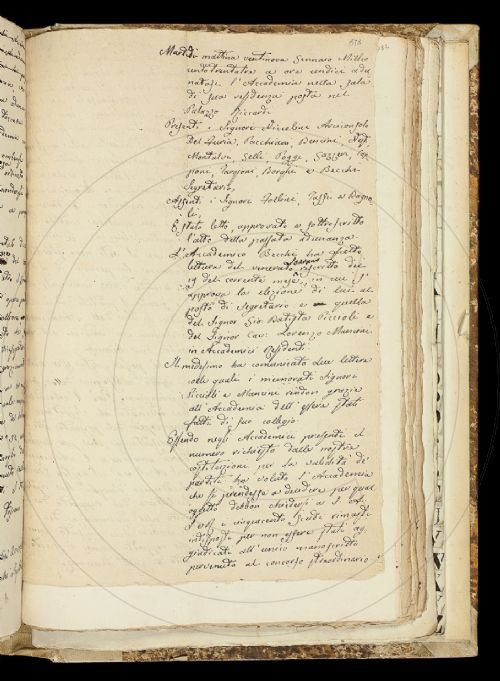 878
Martedì mattina ventinove Gennaro Mille
ottocentotrentatre a ore undici adu
natasi l'Accademia nella sala
di sua residenza posta nel
Palazzo Riccardi
Presenti i Signori Niccolini Arciconsolo
Del Furia, Pacchiani, Bencini, Nesti
Montalvi, Gelli Poggi, Gazzeri, Cap
pioni, Targioni Borghi e Becchi
Segretario,
Assenti i Signori Follini, Taffi e Bagno
li,
È stato letto, approvato e sottoscritto
l'atto della passata adunanza
L'Accademico Becchi ha fatto
lettura del venerato rescritto dei
19 del corrente mese, in cui si
approva la elezione di lui al
posto di Segretario e quella
del Signor Gio. Batista Piccioli e
del Signor Cav. Lorenzo Mancini
in Accademici Residenti.
Il medesimo ha comunicato due lettere
colle quali i memorati Signori
Piccioli e Mancini rendon grazie
all'Accademia dell'essere stati
fatti di suo collegio
Essendo negli Accademici presenti il
numero richiesto dalle nostre
costituzioni per la validità de'
partiti ha voluto l'Accademia
che si prendesse a decidere per qual
oggetto debbon chiedersi a S. A.
I. e R. i cinquecento scudi rimasti
indisposti per non essere stati ag
giudicati all'unico manoscritto
pervenuto al concorso straordinario